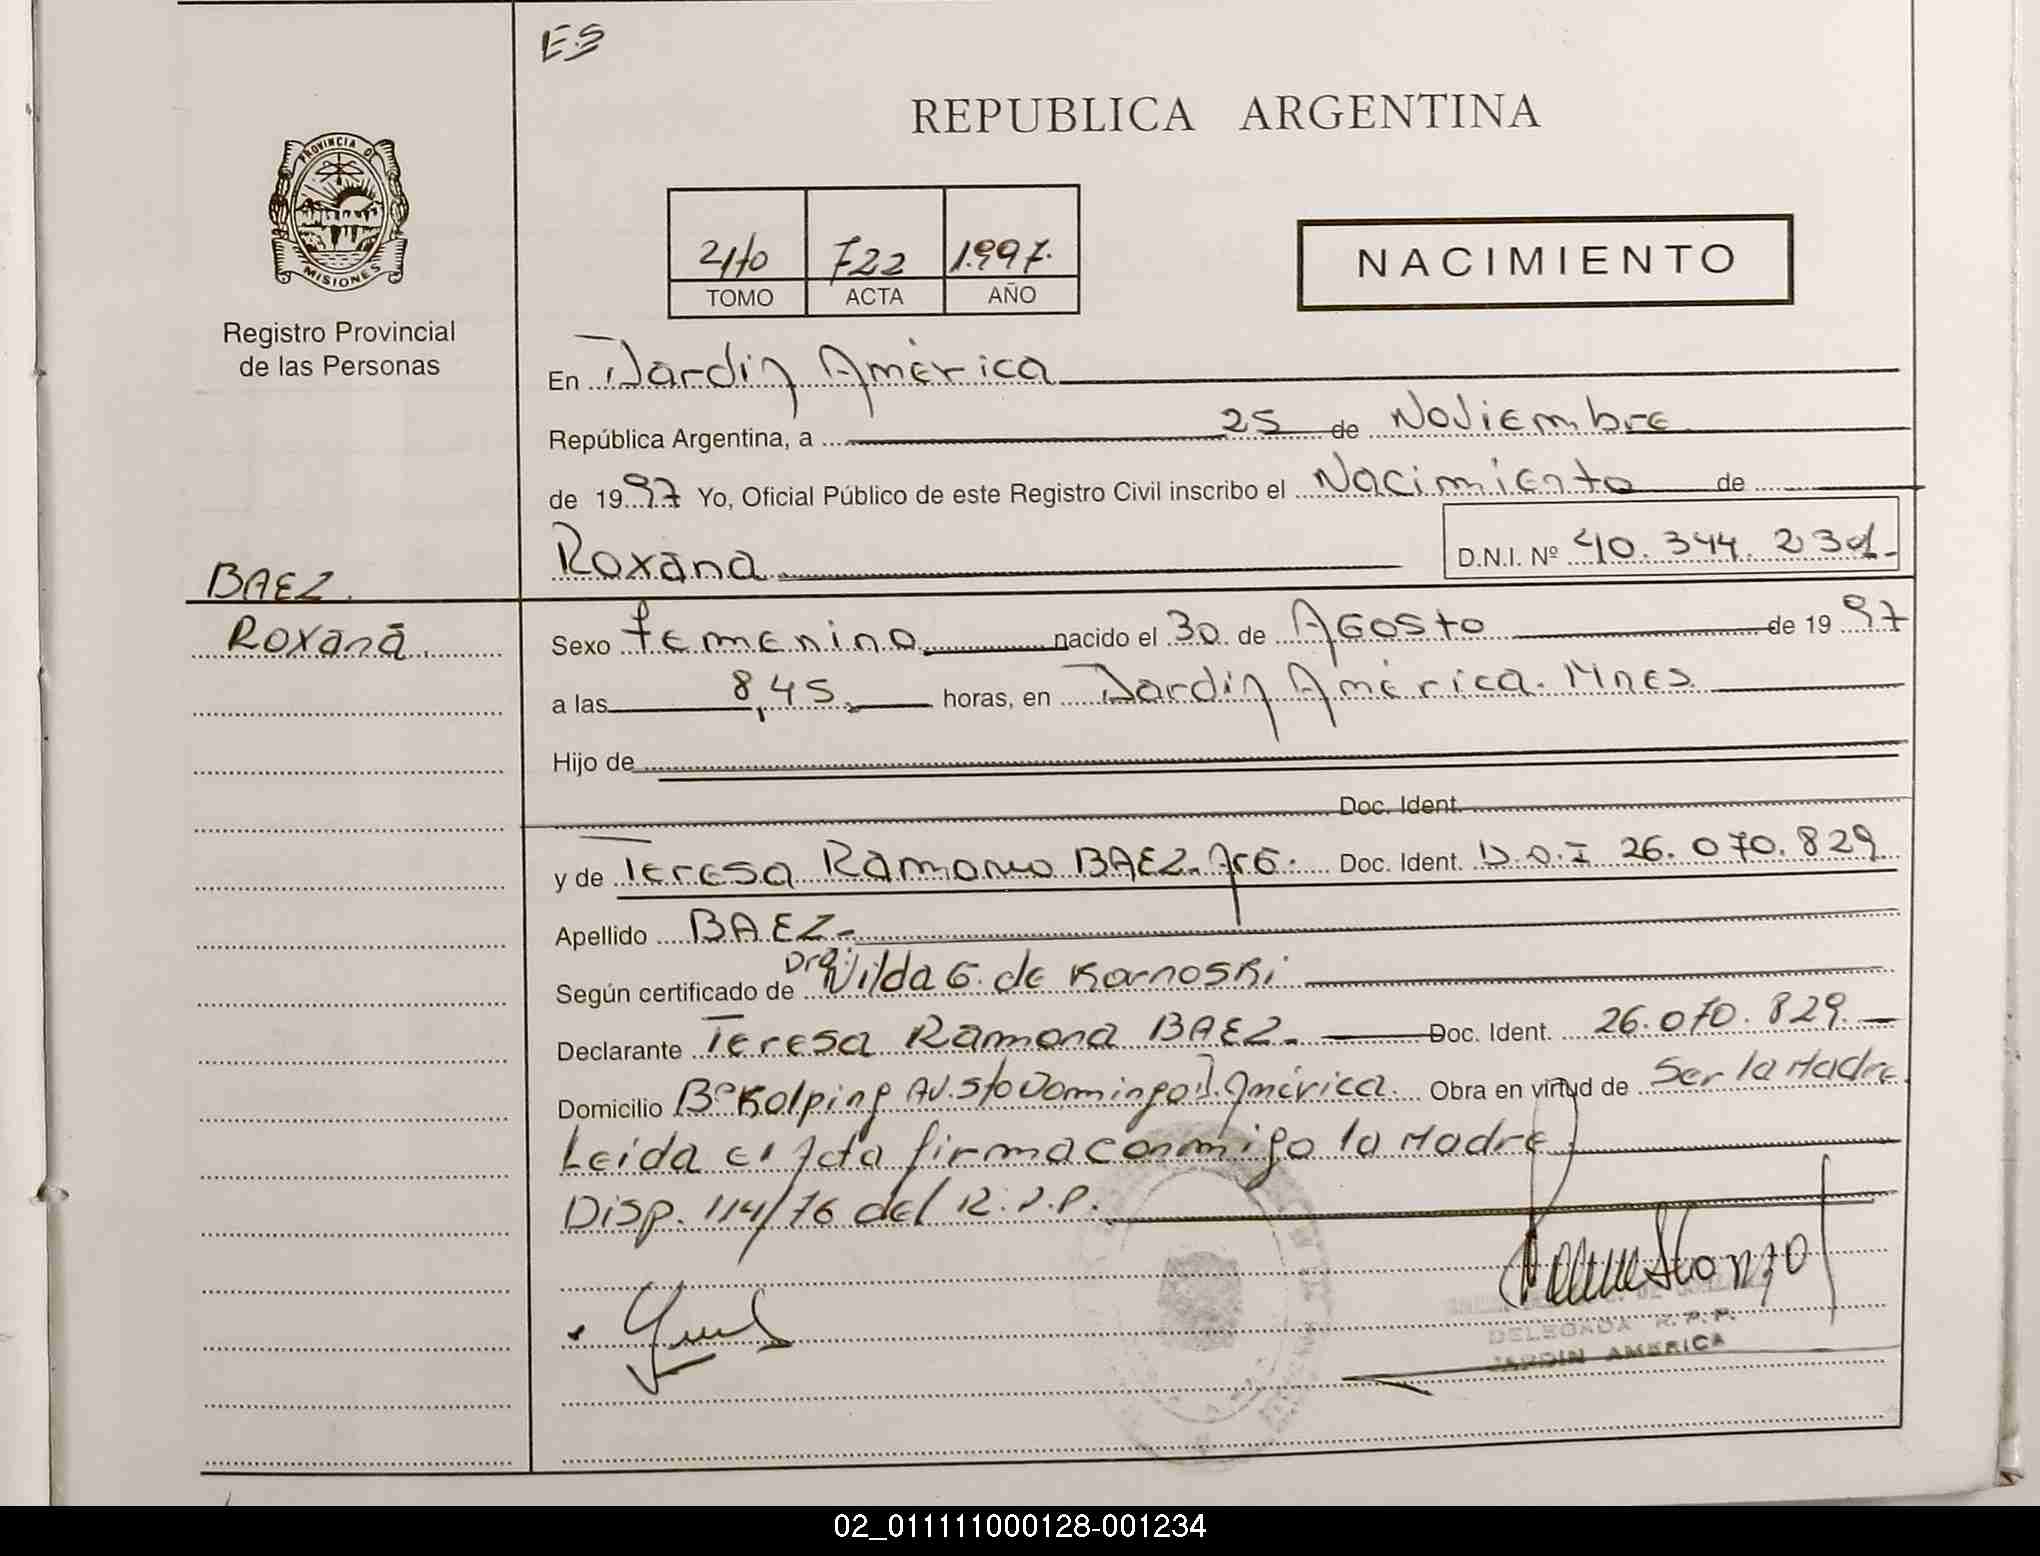 ES
REPUBLICA ARGENTINA
PROVINCIA DE
MISIONES
Registro Provincial
de las Personas
2do 722 1.997.
TOMO ACTA AÑO
NACIMIENTO
En Jardin América
República Argentina, a 25 de Noviembre
de 1997 Yo, Oficial Público de este Registro Civil inscribo el Nacimiento de
Roxana D.N.I. Nº 40.344.231-
BAEZ.
Roxana
Sexo femenino nacido el 30 de Agosto de 1997
a las 8,45 horas, en Jardin América. Mnes
Hijo de
Doc. Ident.
y de Teresa Ramona BAEZ. Arg. Doc. Ident. D.N.I 26.070.829
Apellido BAEZ.-
Según certificado de Dra. Nilda G. de Karnoski
Declarante Teresa Ramona BAEZ.- Doc. Ident. 26.070.829.-
Domicilio Bº Kolping Av. Sto Domingo J. América. Obra en virtud de Ser la Madre
Leida el Acta firma conmigo la Madre
Disp. 114/76 del R.P.P.
DELEGADA R.P.P.
JARDIN AMERICA
02_011111000128-001234